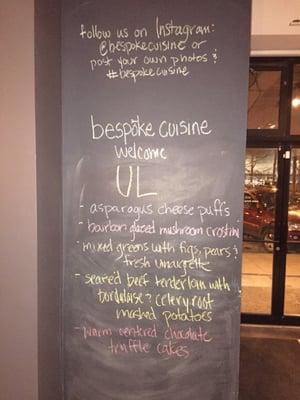 follow us on Instagram:
@bespokecuisine or
post your own photos &
#bespokecuisine
bespoke cuisine
welcome
UL
- asparagus cheese puffs
- bourbon glazed mushroom crostini
- mixed greens with figs, pears &
fresh vinaigrette
- seared beef tenderloin with
bordelaise & celery root
mashed potatoes
- warm centered chocolate
truffle cakes